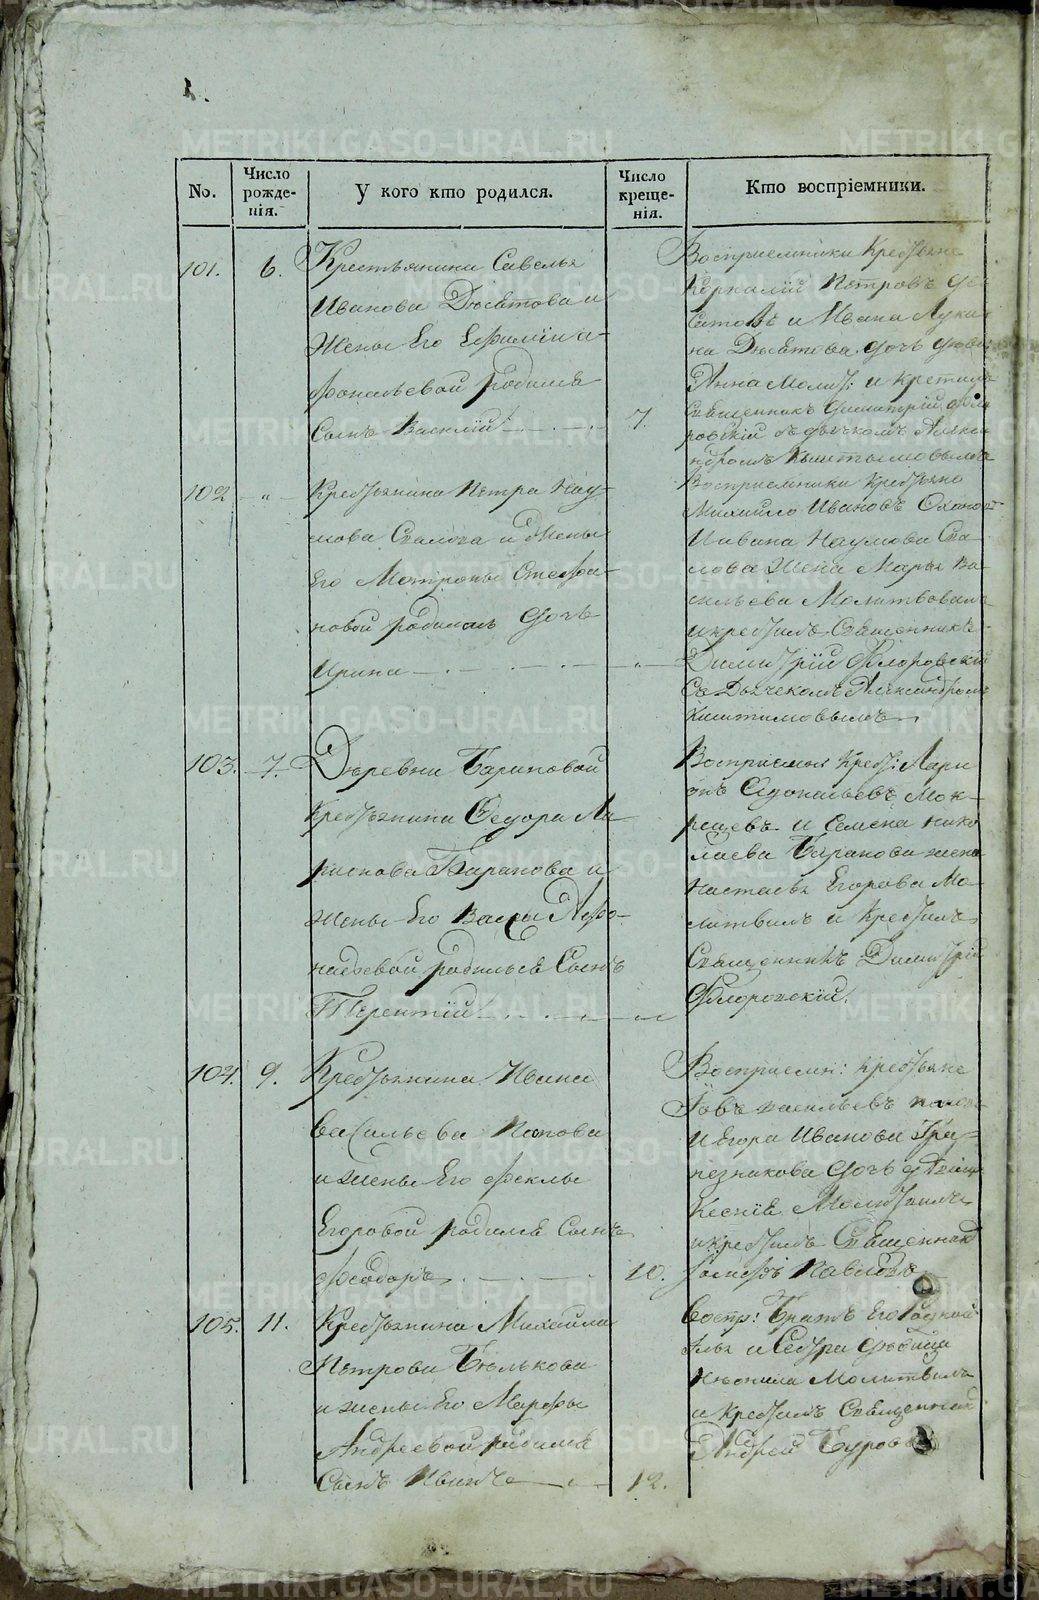 No.
Число рожде-нія.
У кого кто родился.
Число креще-нія.
Кто воспріемники.
101.
6.
Крестьянина Савелья
Иванова Дюсѣтова и
Жены Его Ефиміи А-
фонасьевой родился
Сынъ Василій
7.
Воспріемники Крестьяне
Петровъ
и Ивана Луки-
на Дюсѣтова дочь
Анна Молит: и крестилъ
Священникъ Димитрій Фло
ровскій съ дьячкомъ Алекса
ндромъ Кыштымовымъ
102
"
Крестьянина Петра Нау-
мова Скалова и Жены
Его Матроны Стефа-
новой родилась дочь
Ирина
"
Воспріемники Крестьяне
Михайло Ивановъ
и Ивана Наумова Ска-
лова Жена Марья Ва-
сильева Молитвовалъ
и крестилъ Священникъ
Димитрій Флоровскій
Съ Дьячкомъ Александромъ
Кыштымовымъ
103.
7.
Деревни Бариновой
Крестьянина Федора Ла-
рионова Баранова и
Жены Его Вассы Афо-
насьевой родился Сынъ
Терентій
"
Воспріемн Крест: Лари
онъ Мок-
рецевъ и Семена Нико
лаева Баранова жена
Настасья Егорова Мо-
литвилъ и Крестилъ
Священникъ Димитрій
Флоровскій.
104.
9.
Крестьянина Ивана
Васильева Попова
и жены Его Феклы
Егоровой родился Сынъ
Феодоръ
10.
Воспріемн: Крестьяне
Іовъ Васильевъ Попов
и Егора Иванова Тра-
пезникова дочь дѣвица
Ксенія Молитвилъ
и крестилъ Священник
Іосифъ Павловъ
105.
11.
Крестьянина Михайла
Петрова Тюлькова
и жены Его Марфы
Андреевой родился
Сынъ
12.
Воспр: Братъ Его Родной
Илья и Сестра дѣвица
Неонила Молитвилъ
и Крестилъ Священник
Андрей Буровъ
METRIKI.GASO-URAL.RU